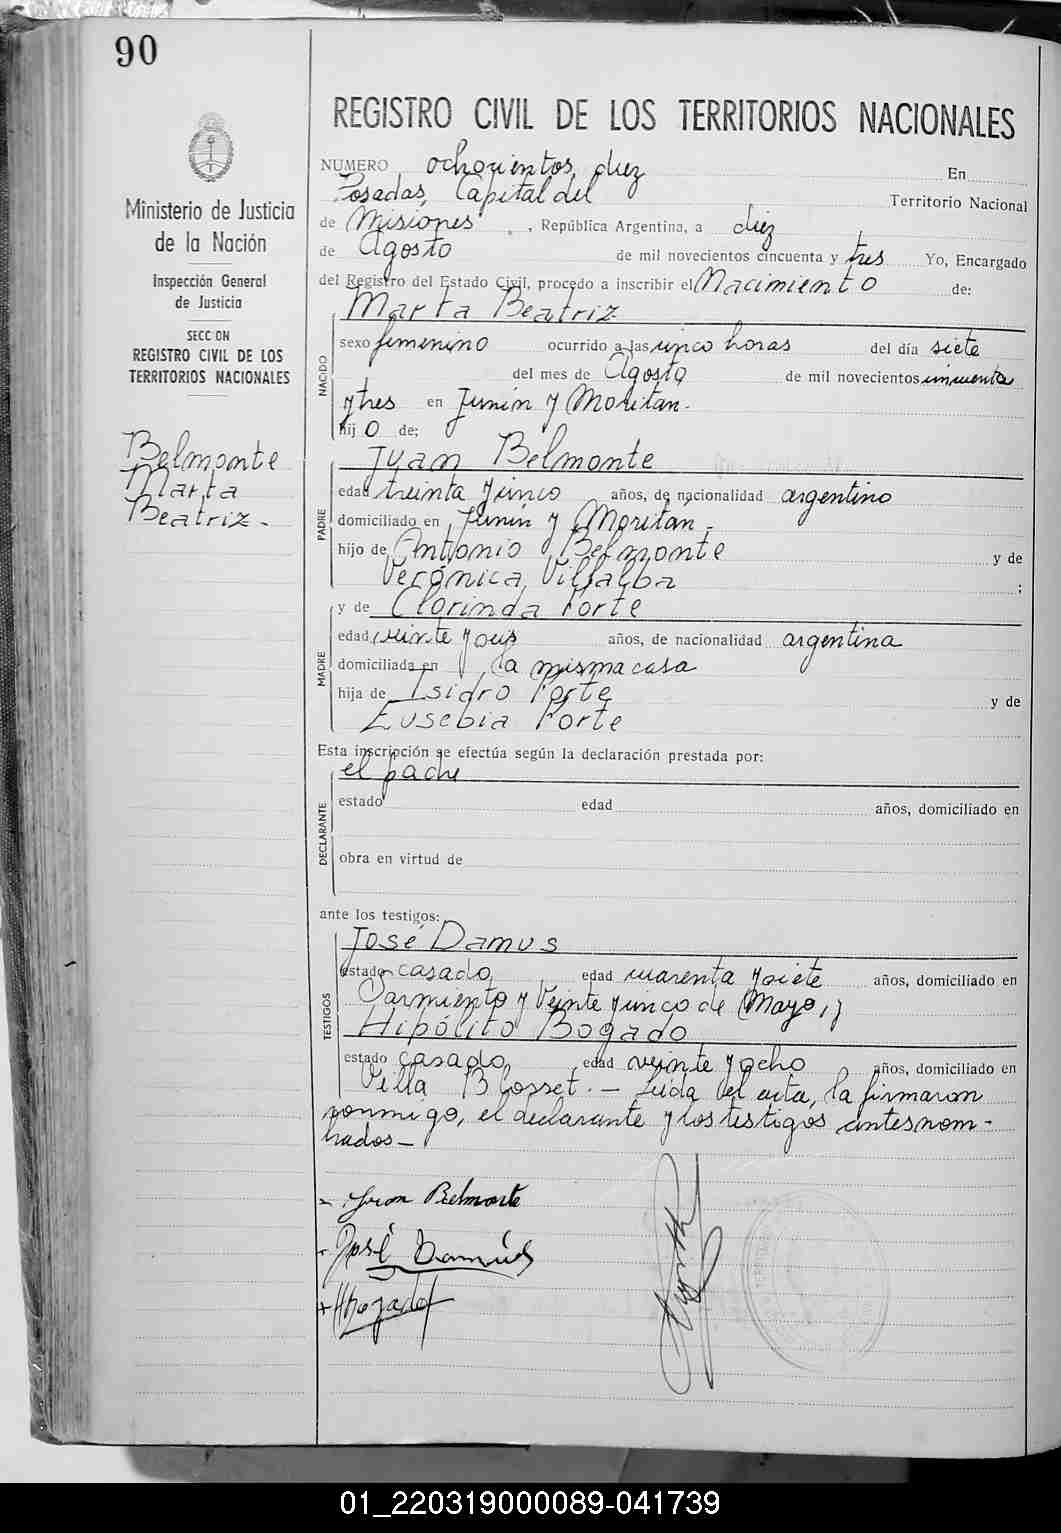 90
REGISTRO CIVIL DE LOS TERRITORIOS NACIONALES
Ministerio de Justicia
de la Nación
Inspección General
de Justicia
SECCION
REGISTRO CIVIL DE LOS
TERRITORIOS NACIONALES
Belmonte
Marta
Beatriz.-
NUMERO ochocientos diez En
Posadas, Capital del Territorio Nacional
de Misiones, República Argentina, a diez
de Agosto de mil novecientos cincuenta y tres Yo, Encargado
del Registro del Estado Civil, procedo a inscribir el Nacimiento de:
NACIDO
Marta Beatriz
sexo femenino ocurrido a las cinco horas del día siete
del mes de Agosto de mil novecientos cincuenta
y tres en Junín y Moritan.
hijo de;
PADRE
Juan Belmonte
edad treinta y cinco años, de nacionalidad argentino
domiciliado en Junín y Moritan.
hijo de Antonio Belmonte y de
Verónica Villalba ;
MADRE
y de Clorinda Porte
edad veinte y seis años, de nacionalidad argentina
domiciliada en la misma casa
hija de Isidro Porte y de
Eusebia Porte
Esta inscripción se efectúa según la declaración prestada por:
DECLARANTE
el padre
estado edad años, domiciliado en
obra en virtud de
ante los testigos:
TESTIGOS
José Damus
estado casado edad cuarenta y siete años, domiciliado en
Sarmiento y Veinte y cinco de Mayo, y
Hipólito Bogado
estado casado, edad veinte y ocho años, domiciliado en
Villa Blosset.- Leída el acta, la firmaron
conmigo, el declarante y los testigos antes nom-
brados-
Juan Belmonte
José Damús
HBogado
01_220319000089-041739